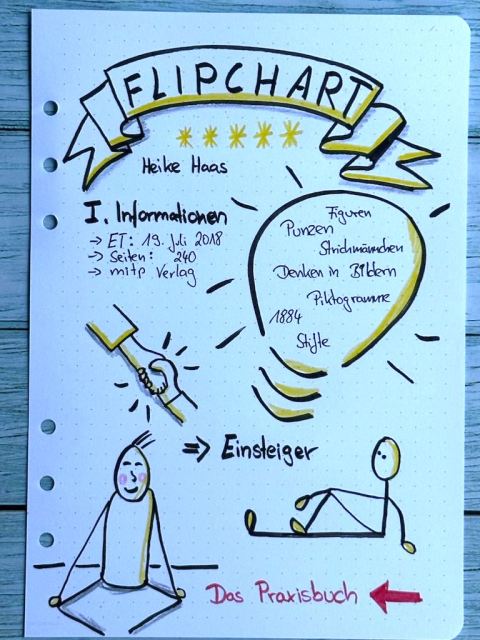 FLIPCHART
Heike Haas
I. Informationen
→ ET: 19. Juli 2018
→ Seiten: 240
→ mitp Verlag
Figuren
Punzen
Strichmännchen
Denken in Bildern
Piktogramme
1884
Stifte
⇒ Einsteiger
Das Praxisbuch